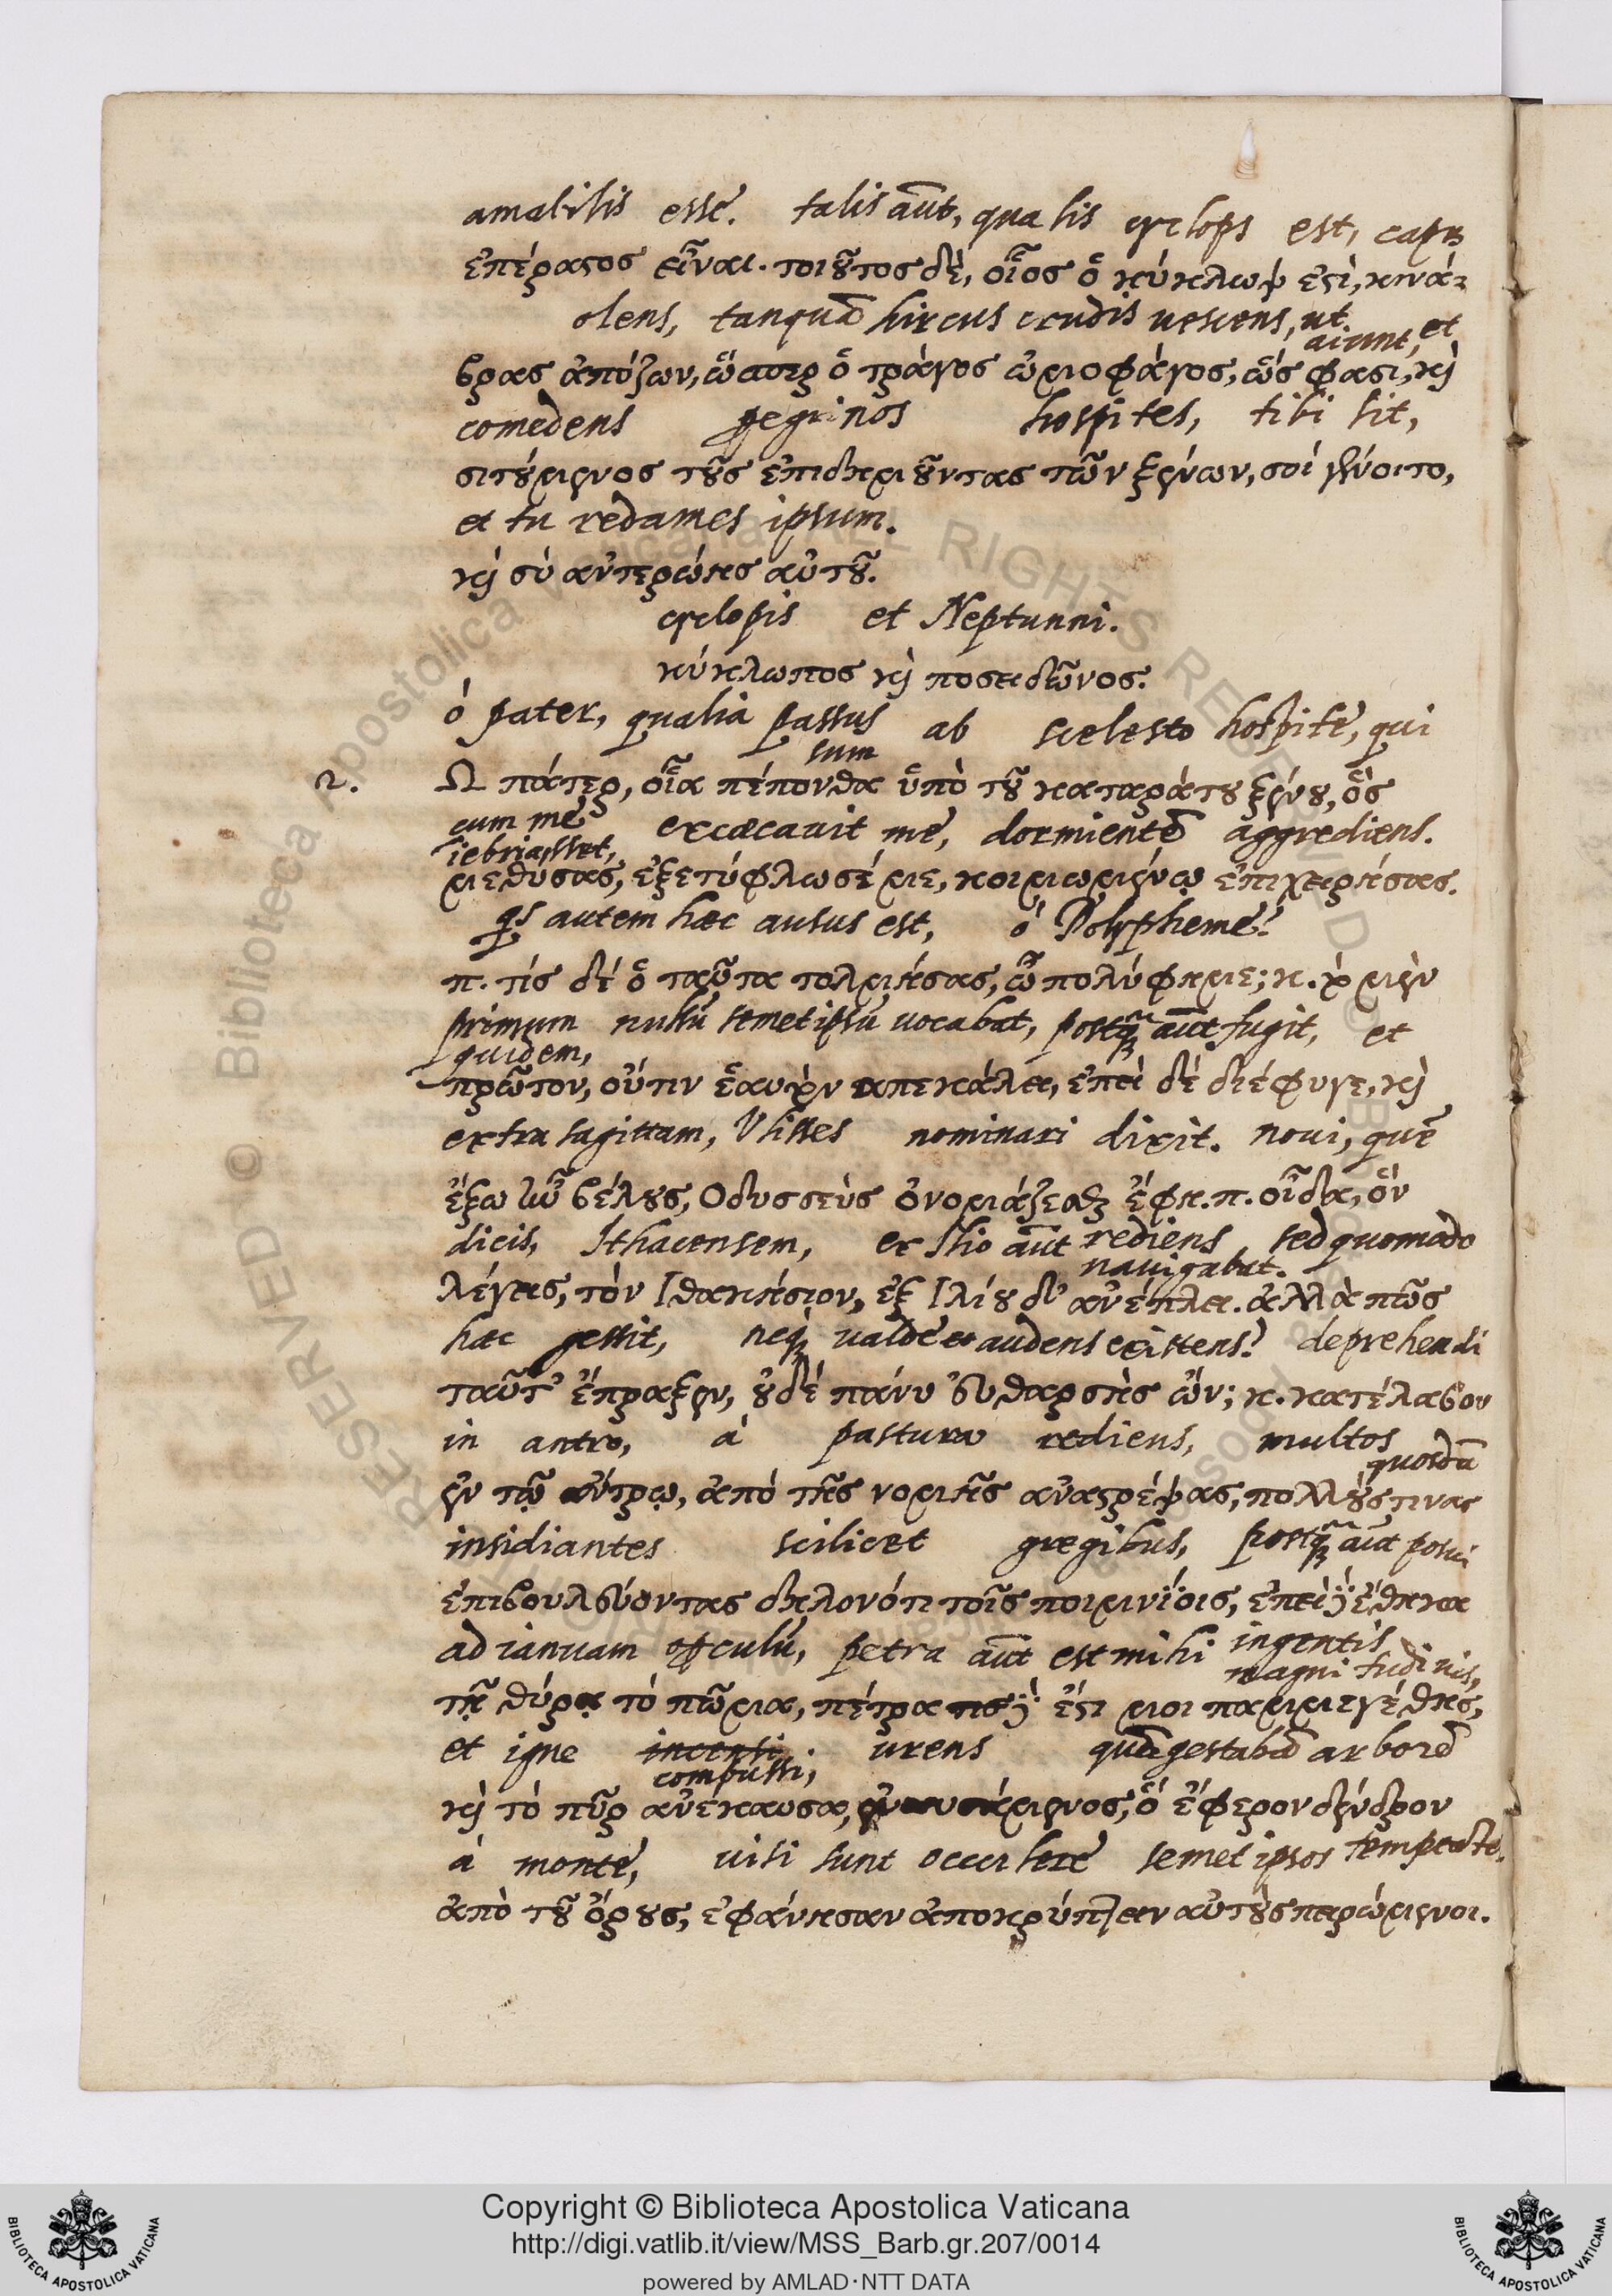 amabilis esse. talis aūt, qualis cyclops est, capȝ
ἐπέραστος εἶναι. τοιοῦτος δὲ, οἷος ὁ κύκλωψ ἐστὶ, κινά-
olens, tanquā hircus crudis vescens, ut
aiunt, et
βρας ἀπόζων, ὥσπερ ὁ τράγος ὠμοφάγος, ὥς φασι, καὶ
comedens pegrinos hospites, tibi sit,
σιτούμενος τοὺς ἐπιδημοῦντας τῶν ξένων, σοί γένοιτο,
et tu redames ipsum.
καὶ σὺ ἀντερῴης αὐτοῦ.
cyclopis et Neptunni.
κύκλωπος καὶ ποσειδῶνος.
ó pater, qualia passus ab scelesto hospite, qui
sum
2. Ω πάτερ, οἷα πέπονθα ὑπὸ τοῦ καταράτου ξένου, ὃς
cum me excæcavit me, dormientē aggrediens.
iebriasset,
μεθύσας, ἐξετύφλωσέ με, κοιμωμένῳ ἐπιχειρήσας.
qs autem hæc ausus est, ó Polypheme?
π. τίς δὲ ὁ ταῦτα τολμήσας, ὦ πολύφημε; κ. τὸ μὲν
primum nullū semetipsū vocabat, postqȝ aūt fugit, et
quidem,
πρῶτον, οὖτιν ἑαυτὸν ἀπεκάλει, ἐπεὶ δὲ διέφυγε, καὶ
extra sagittam, Vlisses nominari dixit. novi, quē
ἔξω ἦν βέλους, Οδυσσεὺς ὀνομάζεσθαι ἔφη. π. οἶδα, ὃν
dicis, Ithacensem, ex Ilio aūt rediens sed quomodo
navigabat.
λέγεις, τὸν Ἰθακήσιον, ἐξ Ἰλίου δ' ἀνέπλει. ἀλλὰ πῶς
hæc gessit, neqȝ valde audens existens? deprehendi
ταῦτ' ἔπραξεν, οὐδὲ πάνυ εὐθαρσὴς ὤν; κ. κατέλαβον
in antro, à pastura rediens, multos
quosdā
ἐν τῷ ἄντρῳ, ἀπὸ τῆς νομῆς ἀναστρέψας, πολλούς τινας
insidiantes scilicet gregibus, postqȝ aūt posui
ἐπιβουλεύοντας δηλονότι τοῖς ποιμνίοις, ἐπεὶ γὰρ ἔθηκα
ad ianuam opculū, petra aūt est mihi ingentis
magnitudinis,
τῇ θύρᾳ τὸ πῶμα, πέτρα γὰρ ἐστι μοι παμμεγέθης,
et igne incensi urens quā gestabā arborē
combussi;
καὶ τὸ πῦρ ἀνέκαυσα, ἐναυσάμενος, ὃ ἔφερον δένδρον
à monte, visi sunt occultere semetipsos temptantes.
ἀπὸ τοῦ ὄρους, ἐφάνησαν ἀποκρύπτειν αὑτοὺς πειρώμενοι.
Copyright © Biblioteca Apostolica Vaticana
http://digi.vatlib.it/view/MSS_Barb.gr.207/0014
powered by AMLAD·NTT DATA
BIBLIOTECA APOSTOLICA VATICANA
BIBLIOTECA APOSTOLICA VATICANA